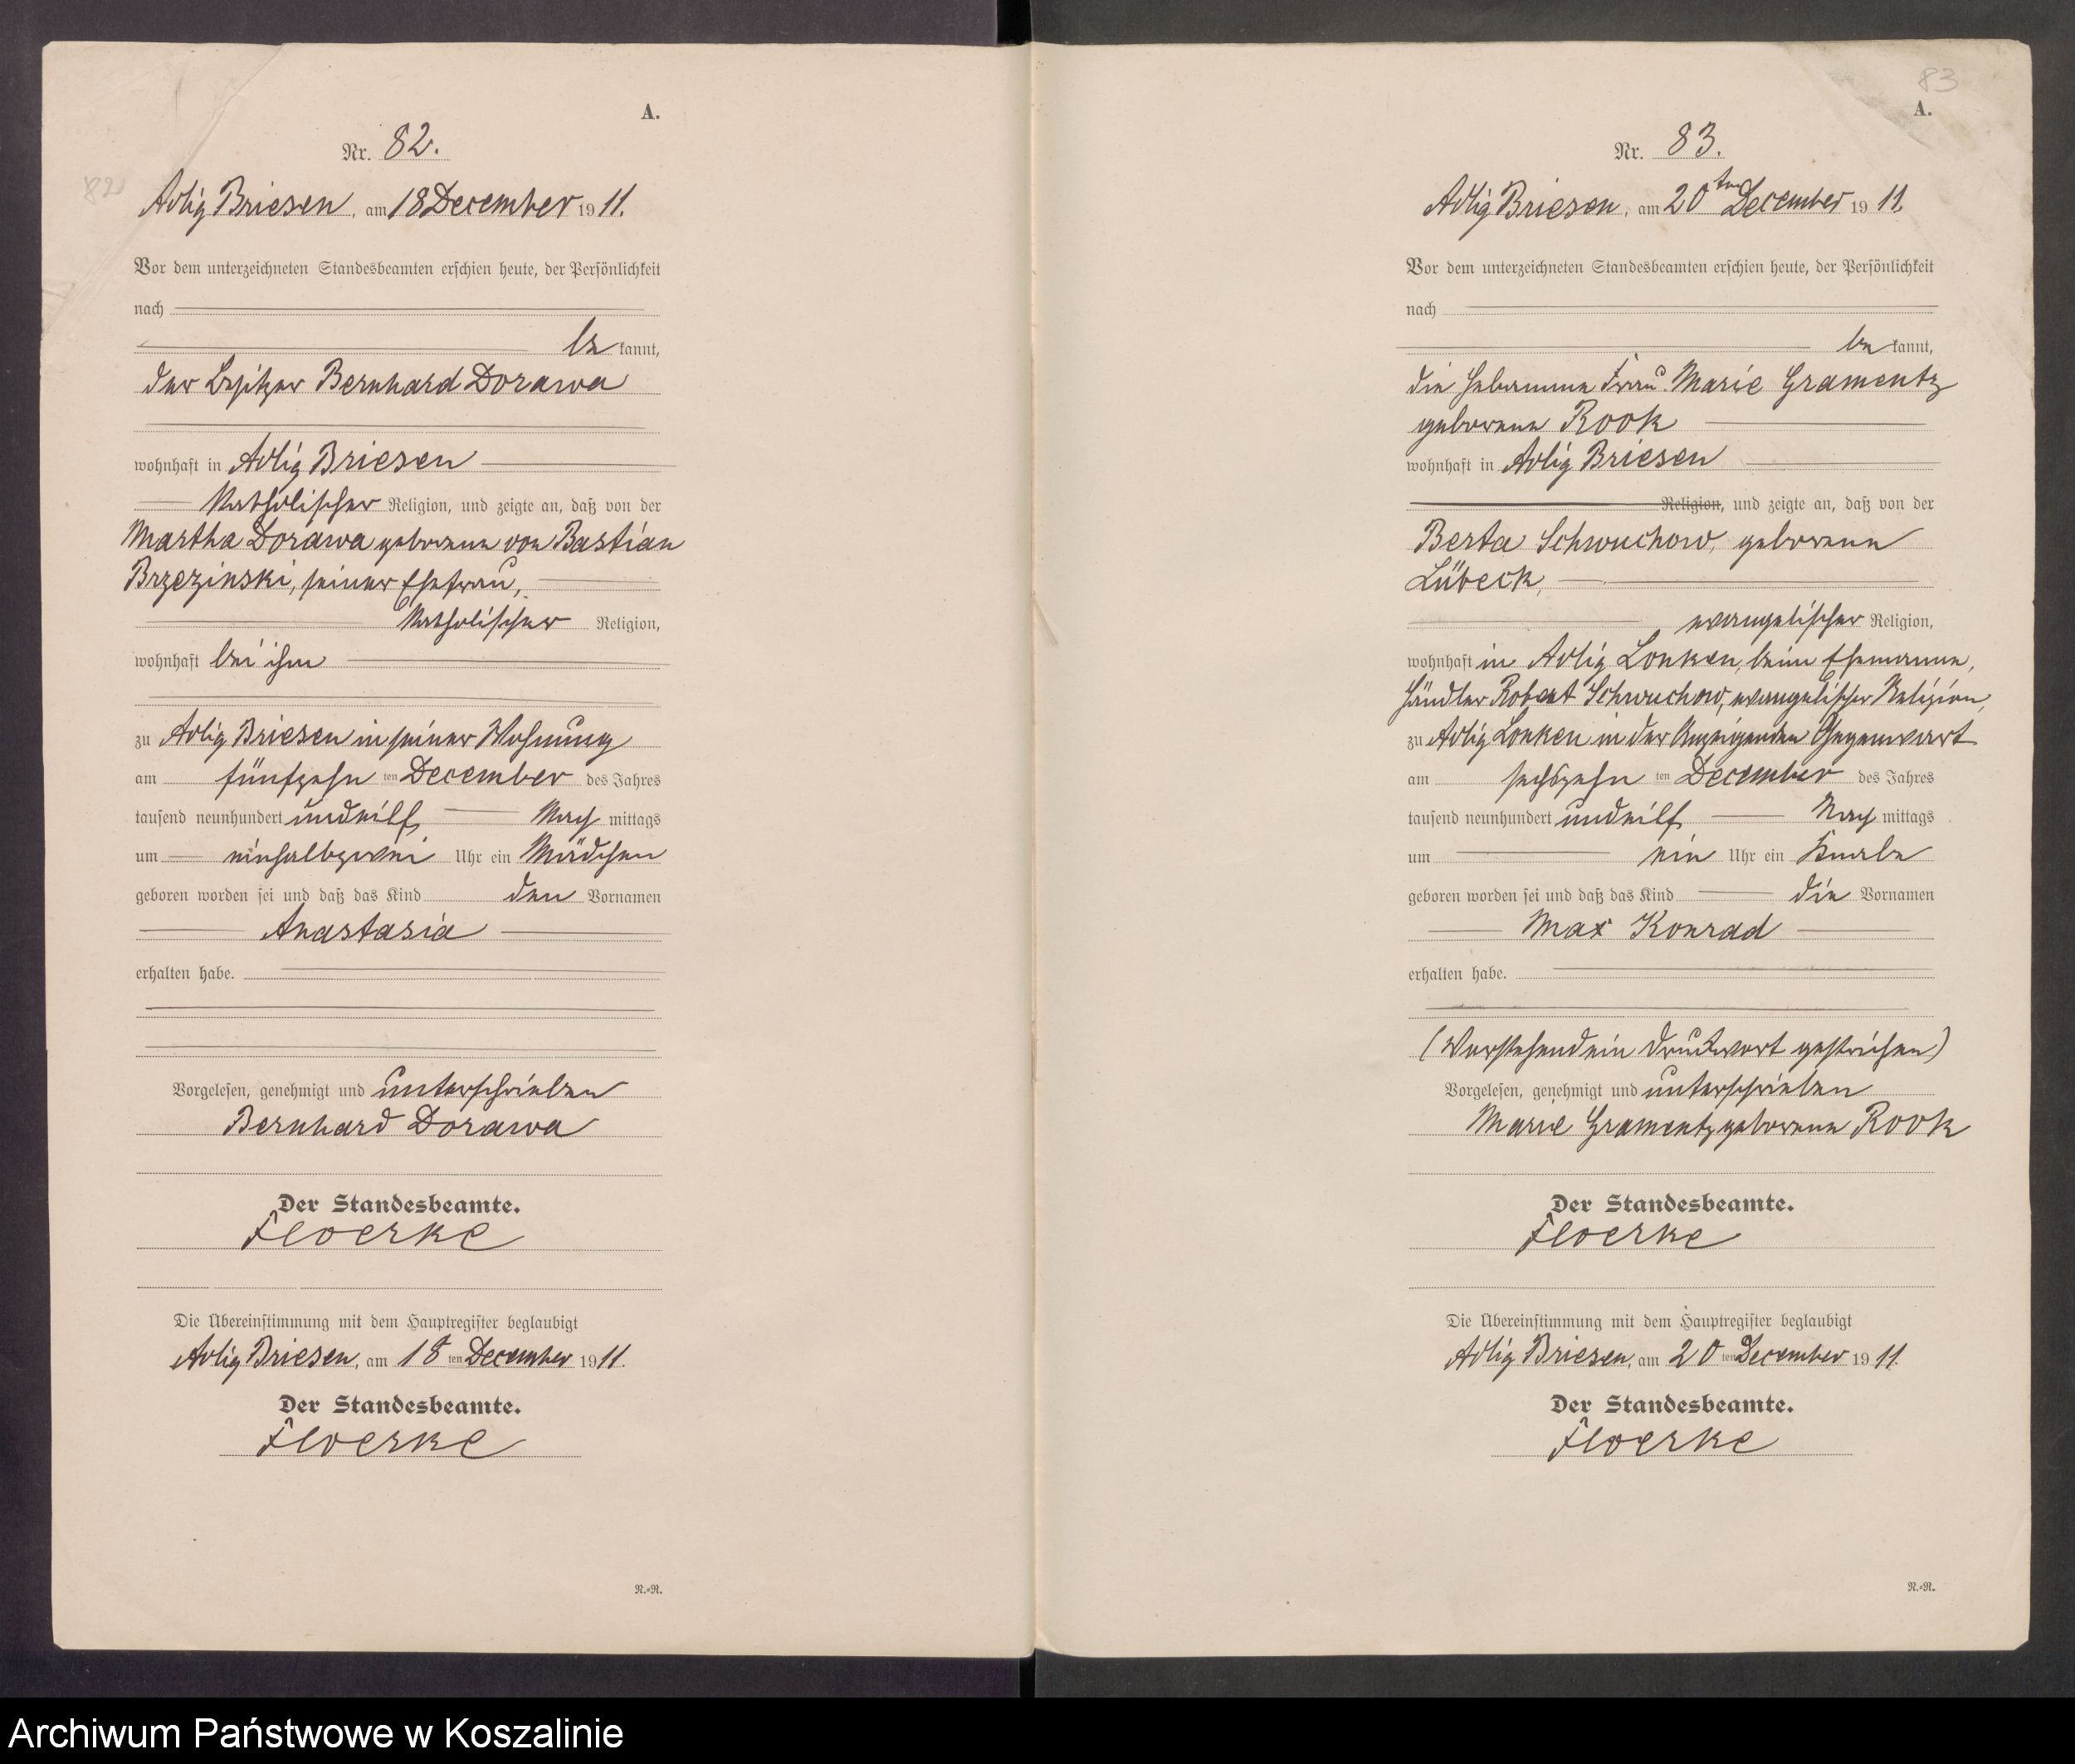 A.
Nr. 82.
82
Adlig Briesen, am 18 December 1911.
Vor dem unterzeichneten Standesbeamten erschien heute, der Persönlichkeit
nach
be kannt,
der Besitzer Bernhard Dorawa
wohnhaft in Adlig Briesen
katholischer Religion, und zeigte an, daß von der
Martha Dorawa geborene von Bastian
Brzezinski, seiner Ehefrau,
katholischer Religion,
wohnhaft bei ihm
zu Adlig Briesen in seiner Wohnung
am fünfzehn ten December des Jahres
tausend neunhundert undeilf Nach mittags
um einhalbzwei Uhr ein Mädchen
geboren worden sei und daß das Kind den Vornamen
Anastasia
erhalten habe.
Vorgelesen, genehmigt und unterschrieben
Bernhard Dorawa
Der Standesbeamte.
Floerke
Die Übereinstimmung mit dem Hauptregister beglaubigt
Adlig Briesen, am 18 ten December 1911.
Der Standesbeamte.
Floerke
N.=R.
83
A.
Nr. 83.
Adlig Briesen, am 20ten December 1911.
Vor dem unterzeichneten Standesbeamten erschien heute, der Persönlichkeit
nach
be kannt,
die Hebamme Frau Marie Gramentz
geborene Rook
wohnhaft in Adlig Briesen
Religion, und zeigte an, daß von der
Berta Schwuchow, geborene
Lübeck,
evangelischer Religion,
wohnhaft in Adlig Lonken, beim Ehemanne,
Händler Robert Schwuchow, evangelischer Religion,
zu Adlig Lonken in der Anzeigenden Gegenwart
am sechszehn ten December des Jahres
tausend neunhundert undeilf Nach mittags
um ein Uhr ein Knabe
geboren worden sei und daß das Kind die Vornamen
Max Konrad
erhalten habe.
(Vorstehend ein Druckwort gestrichen)
Vorgelesen, genehmigt und unterschrieben
Marie Gramentz geborene Rook
Der Standesbeamte.
Floerke
Die Übereinstimmung mit dem Hauptregister beglaubigt
Adlig Briesen, am 20 ten December 1911.
Der Standesbeamte.
Floerke
N.=R.
Archiwum Państwowe w Koszalinie